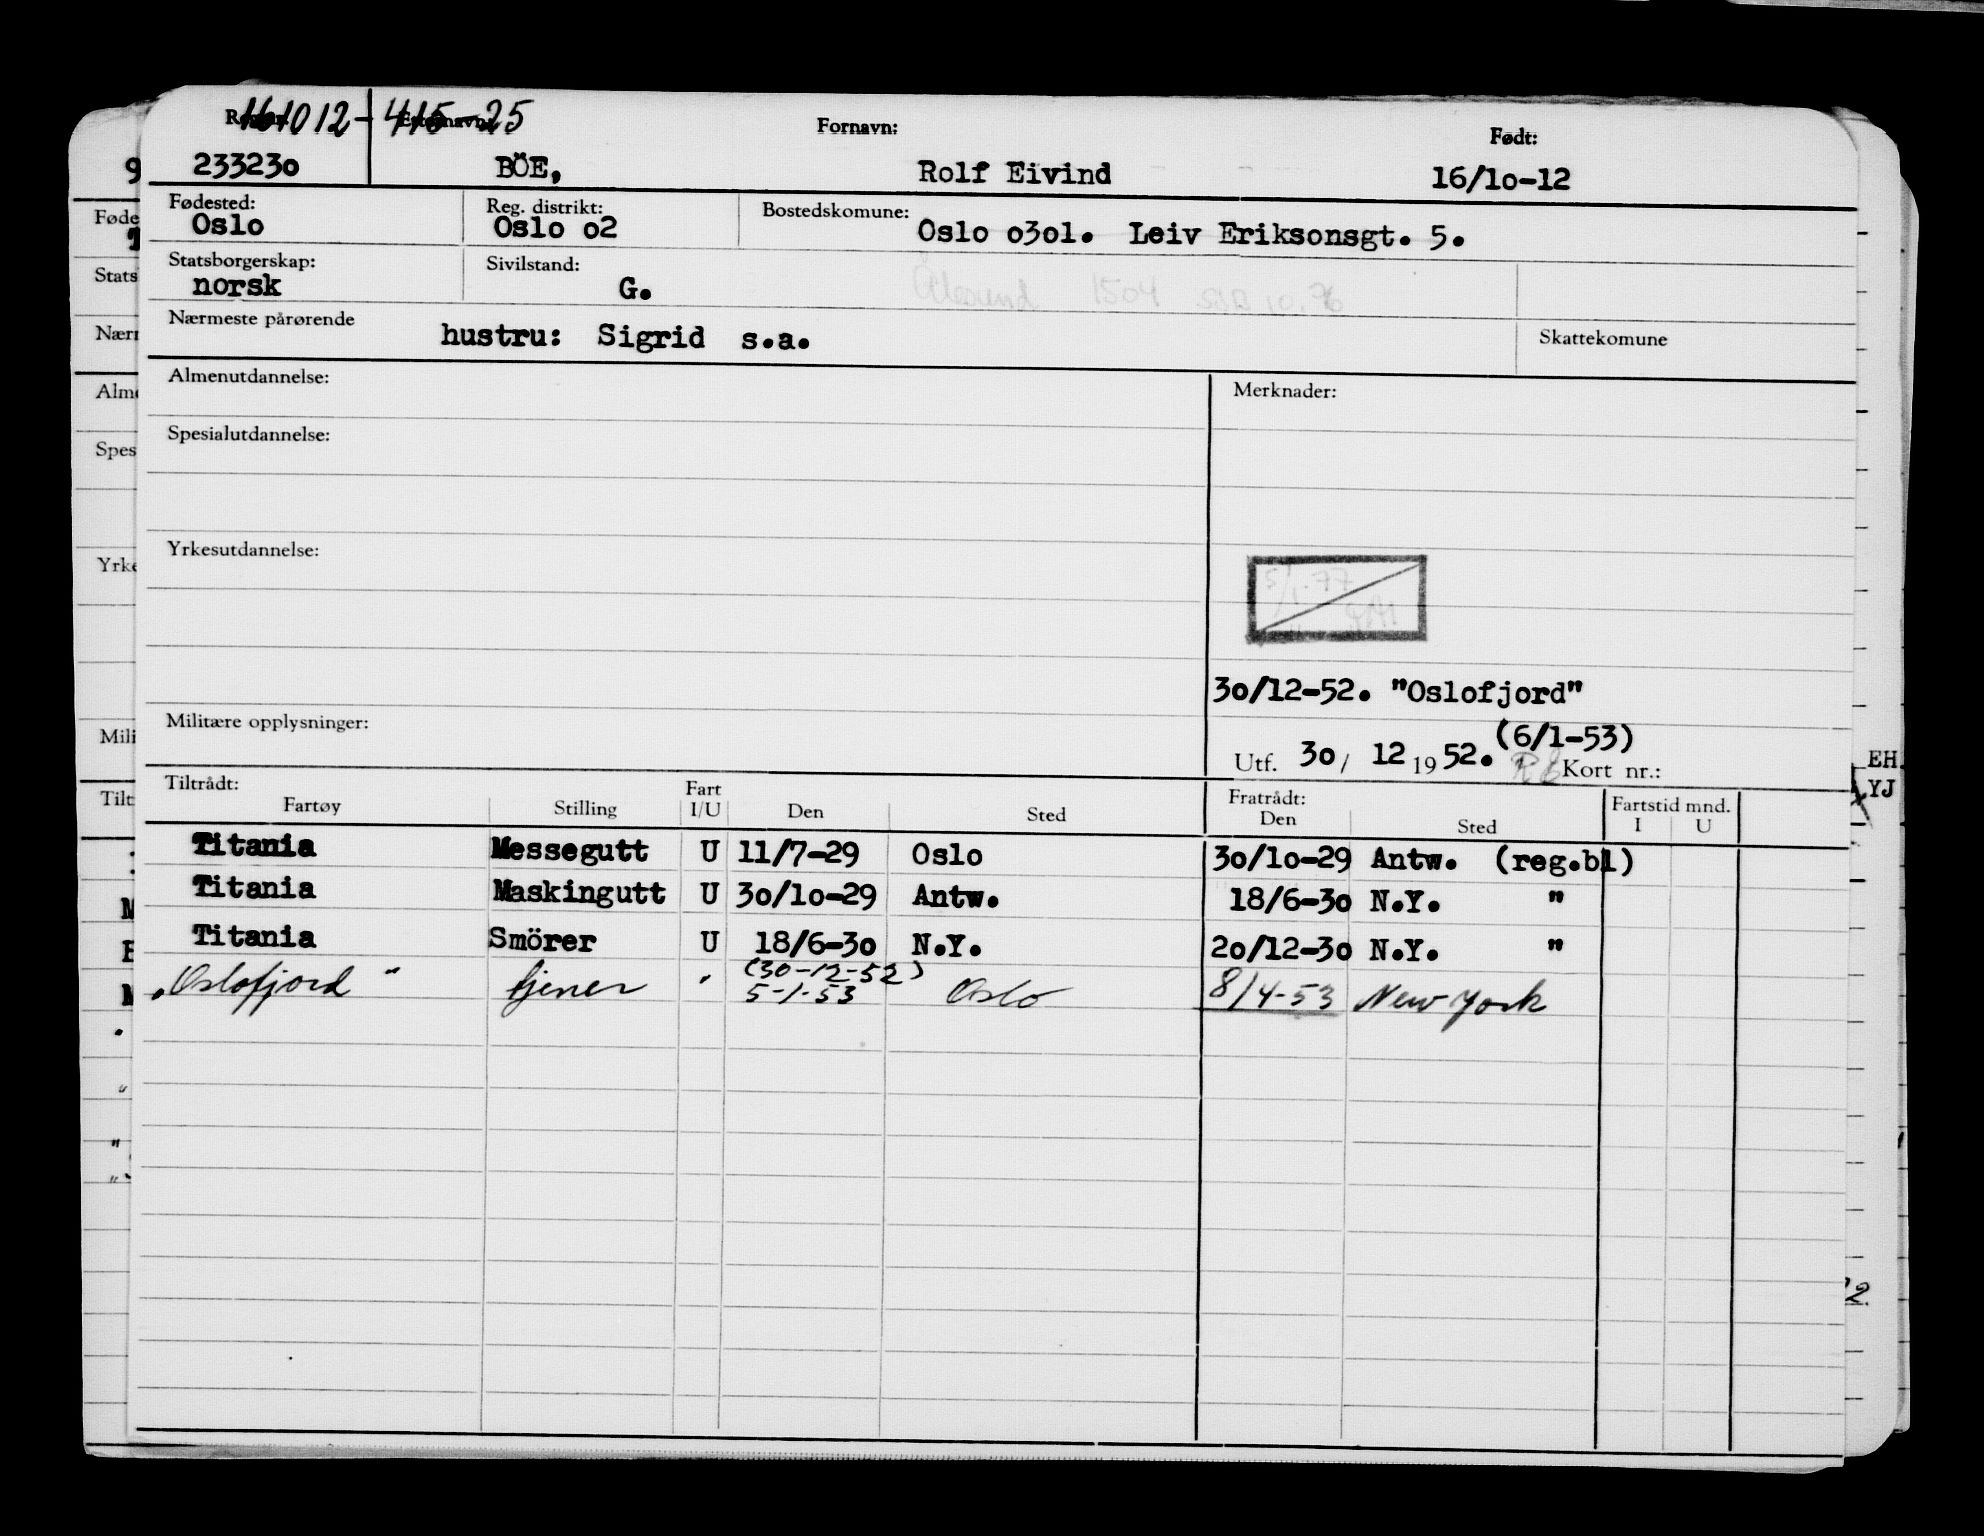 161012-41525
Etternavn: Fornavn: Født:
233230 BÖE, Rolf Eivind 16/10-12
Fødested: Reg. distrikt: Bostedskomune:
Oslo Oslo o2 Oslo o3o1. Leiv Eriksonsgt. 5.
Statsborgerskap: Sivilstand:
norsk G. Ålesund 1504
Nærmeste pårørende hustru: Sigrid s.a. Skattekomune
Almenutdannelse: Merknader:
Spesialutdannelse:
Yrkesutdannelse:
5/1-77
30/12-52. "Oslofjord"
Militære opplysninger: (6/1-53)
Utf. 30/ 12 1952. Kort nr.:
Tiltrådt: Fart Fratrådt: Fartstid mnd.
Fartøy Stilling I/U Den Sted Den Sted I U
Titania Messegutt U 11/7-29 Oslo 30/10-29 Antw. (reg.bl)
Titania Maskingutt U 30/10-29 Antw. 18/6-30 N.Y. "
Titania Smörer U 18/6-30 N.Y. 20/12-30 N.Y. "
(30-12-52)
"Oslofjord" tjener " 5-1-53 Oslo 8/4-53 New York
Føde
Stats
Nærr
Alme
Spes
Yrke
Mili
Tilt
EH
YJ